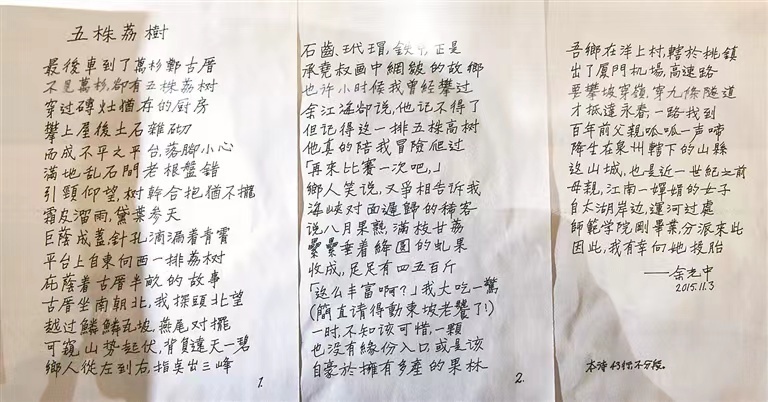 五株荔樹
最後車到了萬杉鄭古厝
不見萬杉,卻有五株荔樹
穿过磚灶猶存的厨房
攀上屋後土石雜砌
而成,不平之平台,落脚小心
滿地乱石間老根盤錯
引頸仰望,树幹合抱猶不攏
霜皮溜雨,黛葉参天
巨蔭成蓋,針孔滴漏着青霄
平台上自東向西一排荔树
庇蔭着古厝半畝的故事
古厝坐南朝北,我探頭北望
越过鱗鱗瓦坡,燕尾对擺
可窺山势起伏,背負遠天一碧
鄉人從左到右,指点出三峰
1.
石齒、玳瑁,正是
承堯叔画中皴的故鄉
也许小时候我曾經攀过
余江海卻说,他记不得了
但记得这一排五株高树
他真的陪我冒险爬过
「再来比賽一次吧,」
鄉人笑说,又爭相告诉我
海峡对面遲歸的稀客
说八月果熟,滿枝甘荔
纍纍垂着絳圓的虬果
收成,足足有四五百斤
「这么丰富啊?」我大吃一驚
(簡直请得動東坡老饕了!)
一时,不知该可惜,一颗
也没有緣份入口,或是该
自豪於擁有多產的果林
2.
吾鄉在洋上村,轄於桃鎮
出了厦门机場,高速路
要攀坡穿嶺,穿九條隧道
才抵達永春,一路找到
百年前父親呱呱一声啼
降生在泉州轄下的山縣
这山城,也是近一世纪之前
母親,江南一嬋娟的女子
自太湖岸边,運河过處
師範学院剛畢業,分派来此
因此,我有幸向她投胎
——余光中
2015.11.3
本诗43行,不分段。